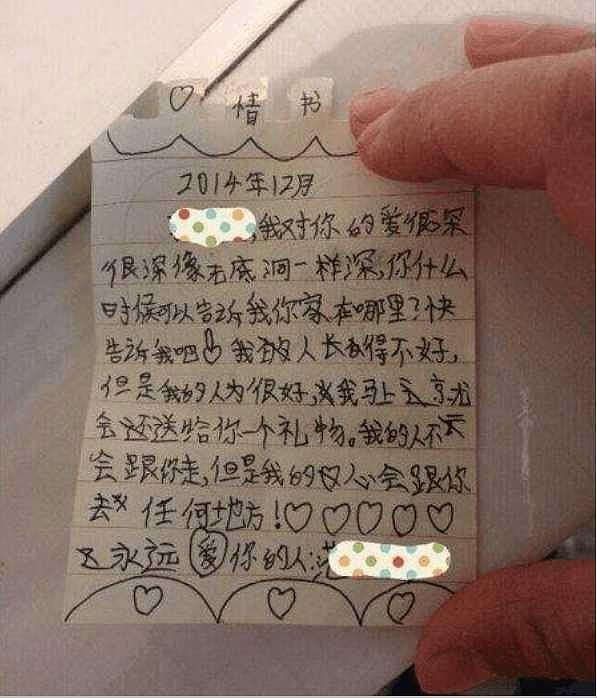 情书
2014年12月
,我对你的爱很深
很深像无底洞一样深,你什么
时候可以告诉我你家在哪里?快
告诉我吧 我的人长得不好,
但是我的人为很好,我马上
会还送给你一个礼物。我的人不
会跟你走,但是我的心会跟你
去任何地方!
永远爱你的人: